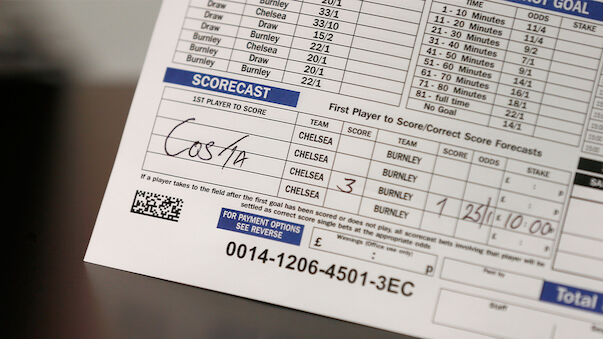 GOAL
TIME
ODDS
STAKE
1 - 10 Minutes 11/4
11 - 20 Minutes 11/4
21 - 30 Minutes 9/2
31 - 40 Minutes 7/1
41 - 50 Minutes
51 - 60 Minutes
61 - 70 Minutes 14/1
71 - 80 Minutes 18/1
81 - full time 22/1
No Goal 14/1
Burnley 20/1
Draw Chelsea 33/10
Draw Draw 15/2
Draw Burnley 22/1
Burnley Chelsea 20/1
Burnley Draw 22/1
Burnley Burnley
SCORECAST
First Player to Score/Correct Score Forecasts
1ST PLAYER TO SCORE TEAM SCORE TEAM SCORE ODDS STAKE
CHELSEA BURNLEY £ : p
Costa CHELSEA BURNLEY
CHELSEA 3 BURNLEY 1 25/1 10:00
CHELSEA BURNLEY
If a player takes to the field after the first goal has been scored or does not play, all scorecast bets involving that player will be
settled as correct score single bets at the appropriate odds
FOR PAYMENT OPTIONS
SEE REVERSE
Winnings (Office use only)
£ : p
0014-1206-4501-3EC
Staff
Total